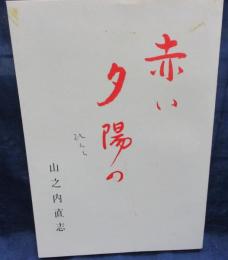 赤い
夕陽の
山之内直志